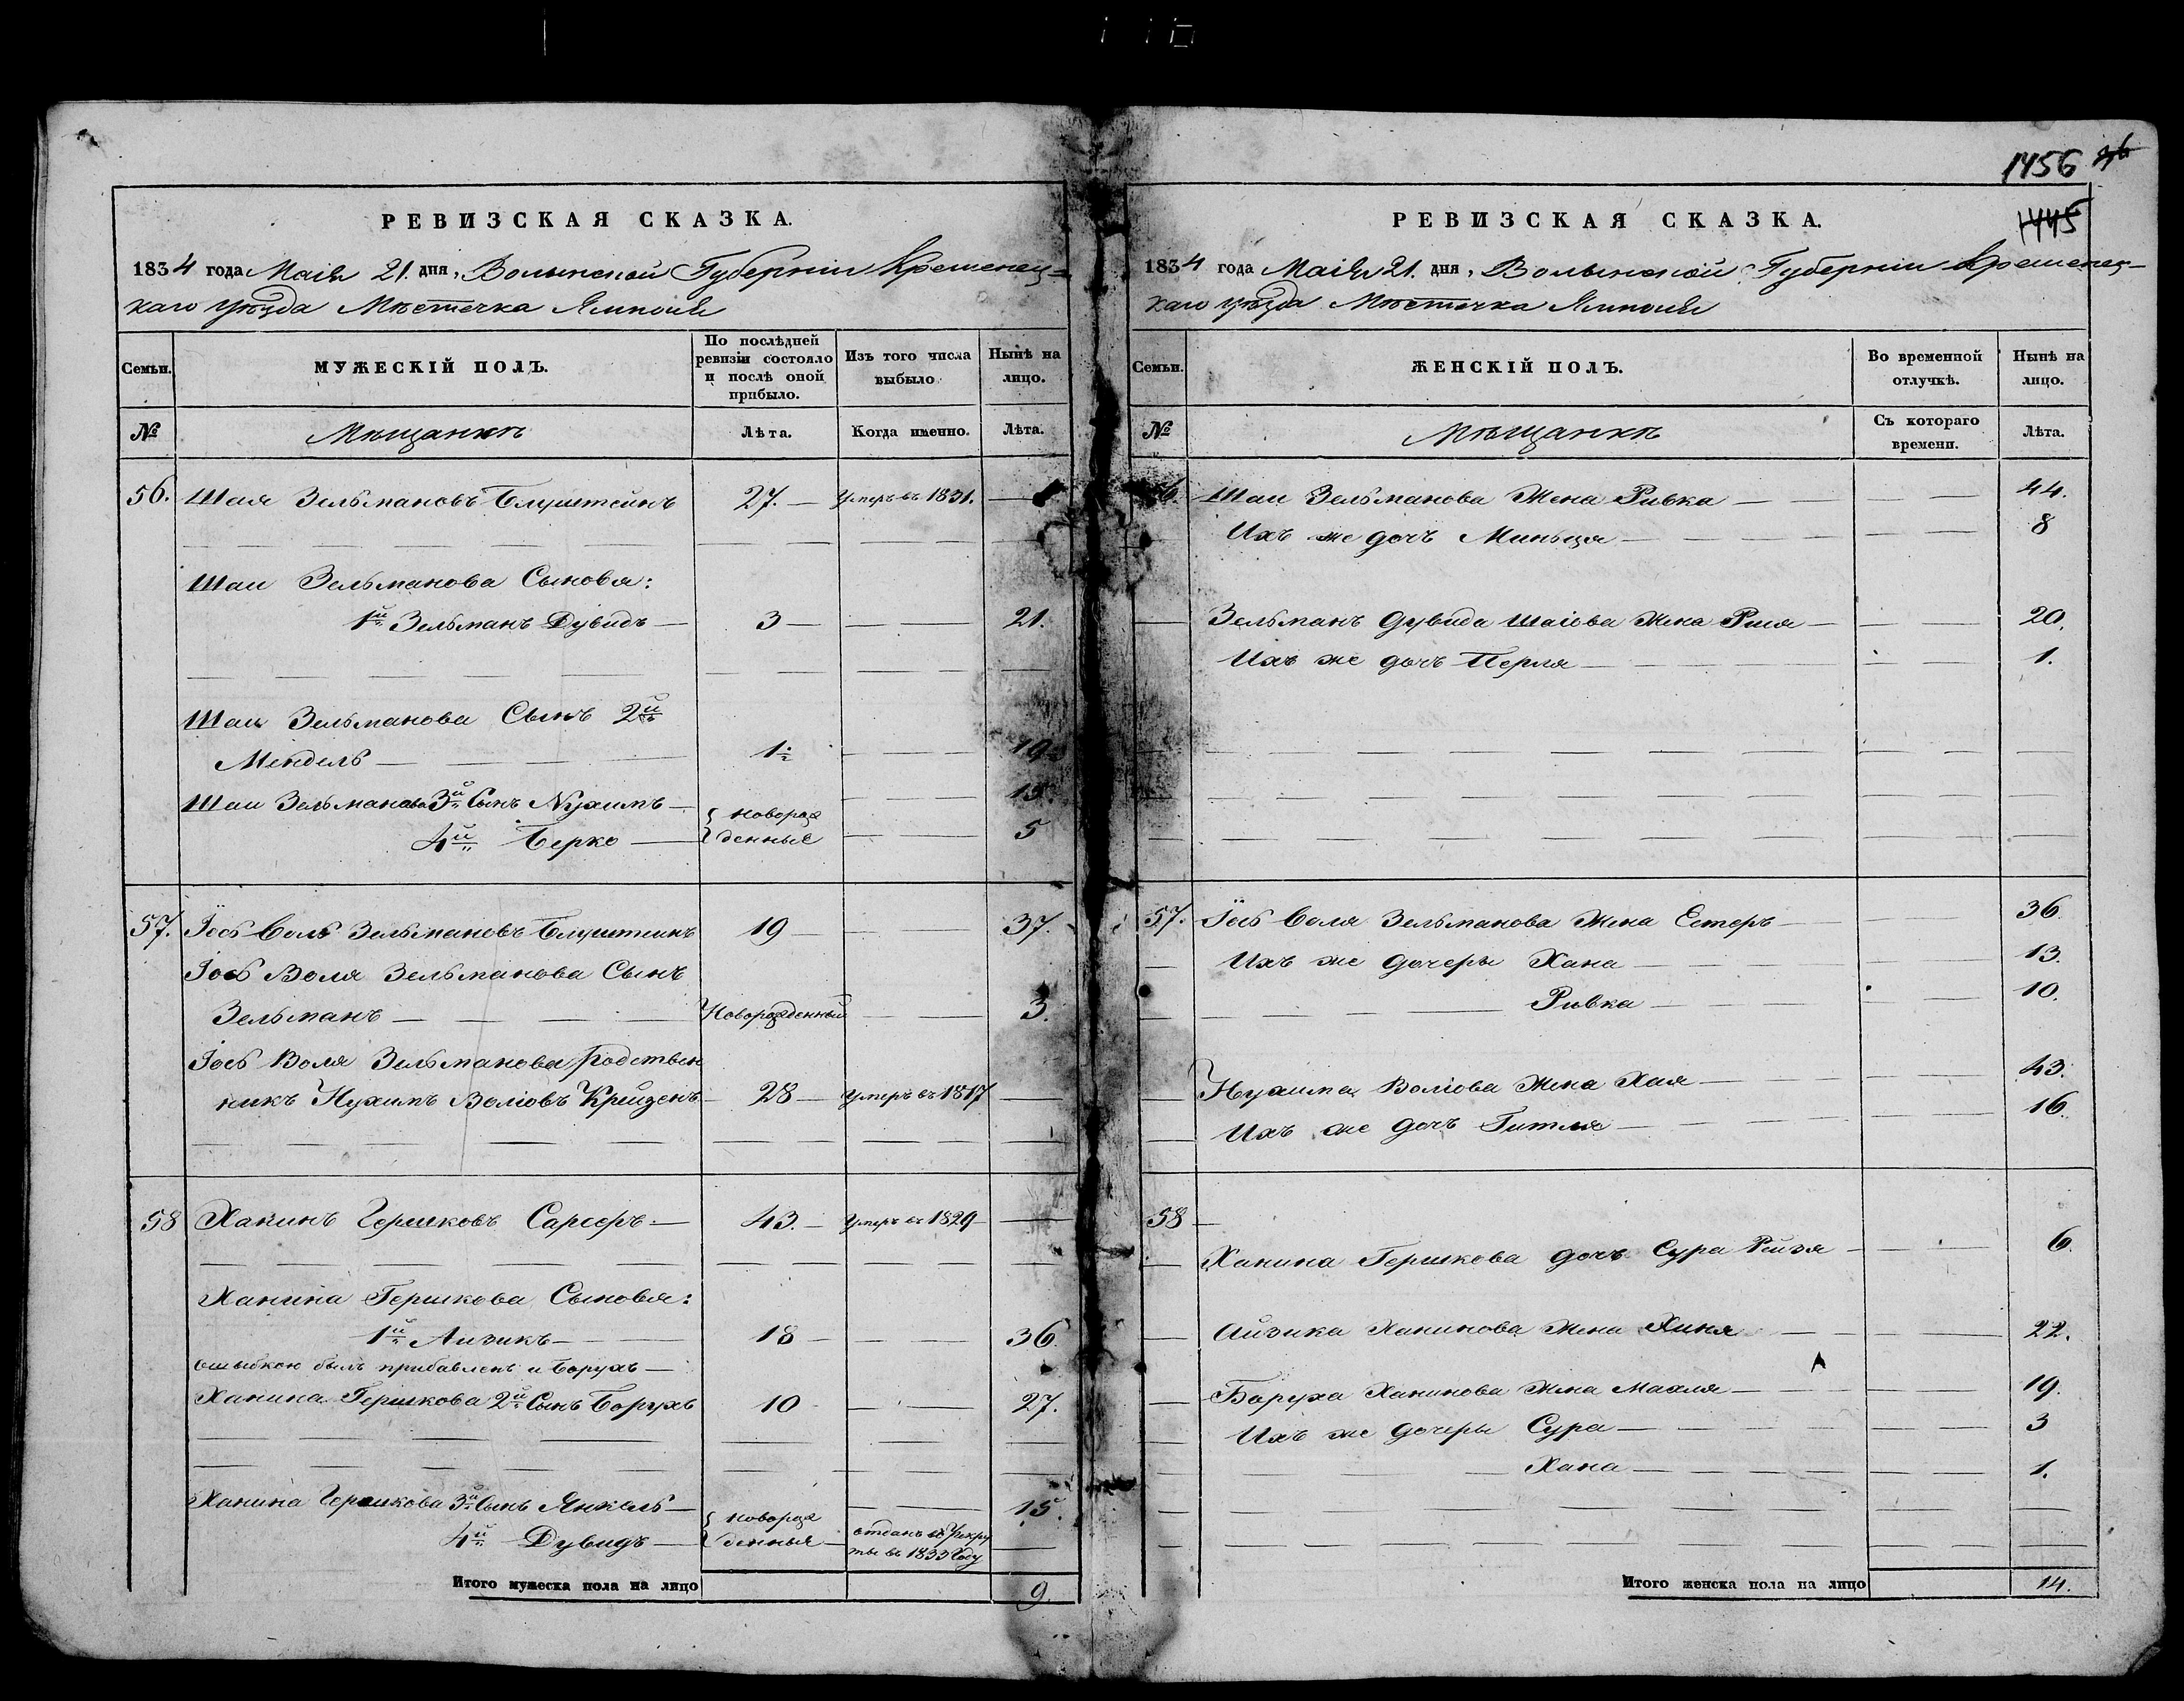 1456
1445
РЕВИЗСКАЯ СКАЗКА.
1834 года Маія 21. дня, Волынской Губерніи Кременец-
каго уѣзда Мѣстечка Ямполя
Семьи.
МУЖЕСКІЙ ПОЛЪ.
По послѣдней ревизіи состояло и послѣ оной прибыло.
Изъ того числа выбыло
Нынѣ на лицо.
№
Мѣщанинъ
Лѣта.
Когда именно.
Лѣта.
56. Шая Зельмановъ Блуштейнъ 27. — Умеръ въ 1831. —
Шаи Зельманова Сыновья:
1й Зельманъ Дувидъ — 3 — 21.
Шаи Зельманова Сынъ 2й
Мендель — 1½ 19
Шаи Зельманова 3й Сынъ Нухимъ — новорож 15.
4й Берко — денные 5
57. Іось Воль Зельмановъ Блуштеинъ 19 37.
Іось Воля Зельманова Сынъ
Зельманъ — Новорожденный 3.
Іось Воля Зельманова родствен
никъ Нухимъ Воліовъ Крейзенъ — 28 — умеръ въ 1817 —
58 Ханинъ Гершковъ Сарсеръ — 43. — умеръ въ 1829 —
Ханина Гершкова Сыновья:
1й Аизикъ — 18 — 36.
ошыбкою былъ прибавленъ и Борухъ —
Ханина Гершкова 2й Сынъ Борухъ 10 27.
Ханина Гершкова 3й Сынъ Янкель — новорож 15.
4й Дувидъ — денныя — отданъ въ рекру
ты въ 1833 Году
Итого мужеска пола на лицо 9.
РЕВИЗСКАЯ СКАЗКА.
1834 года Маія 21. дня, Волынской Губерніи Кременец-
каго уѣзда Мѣстечка Ямполя
Семьи.
ЖЕНСКІЙ ПОЛЪ.
Во временной отлучкѣ.
Нынѣ на лицо.
№
Мѣщанкѣ
Съ котораго времени.
Лѣта.
56. Шаи Зельманова Жена Ривка — 44.
Ихъ же дочъ Миньця — 8
Зельманъ Дувида Шаіова Жена — 20.
Ихъ же дочъ Перля — 1.
57. Іось Воля Зельманова Жена Естеръ — 36.
Ихъ же дочеры Хана — 13.
Ривка — 10.
Нухима Воліова Жена Хая — 43.
Ихъ же дочъ Гитля — 16.
58 —
Ханина Гершкова дочъ Сура Рейзя — 6.
Айзика Ханинова Жена Хиня — 22.
Боруха Ханинова Жена Махля — 19.
Ихъ же дочеры Сура — 3
Хана — 1.
Итого женска пола на лицо 14.